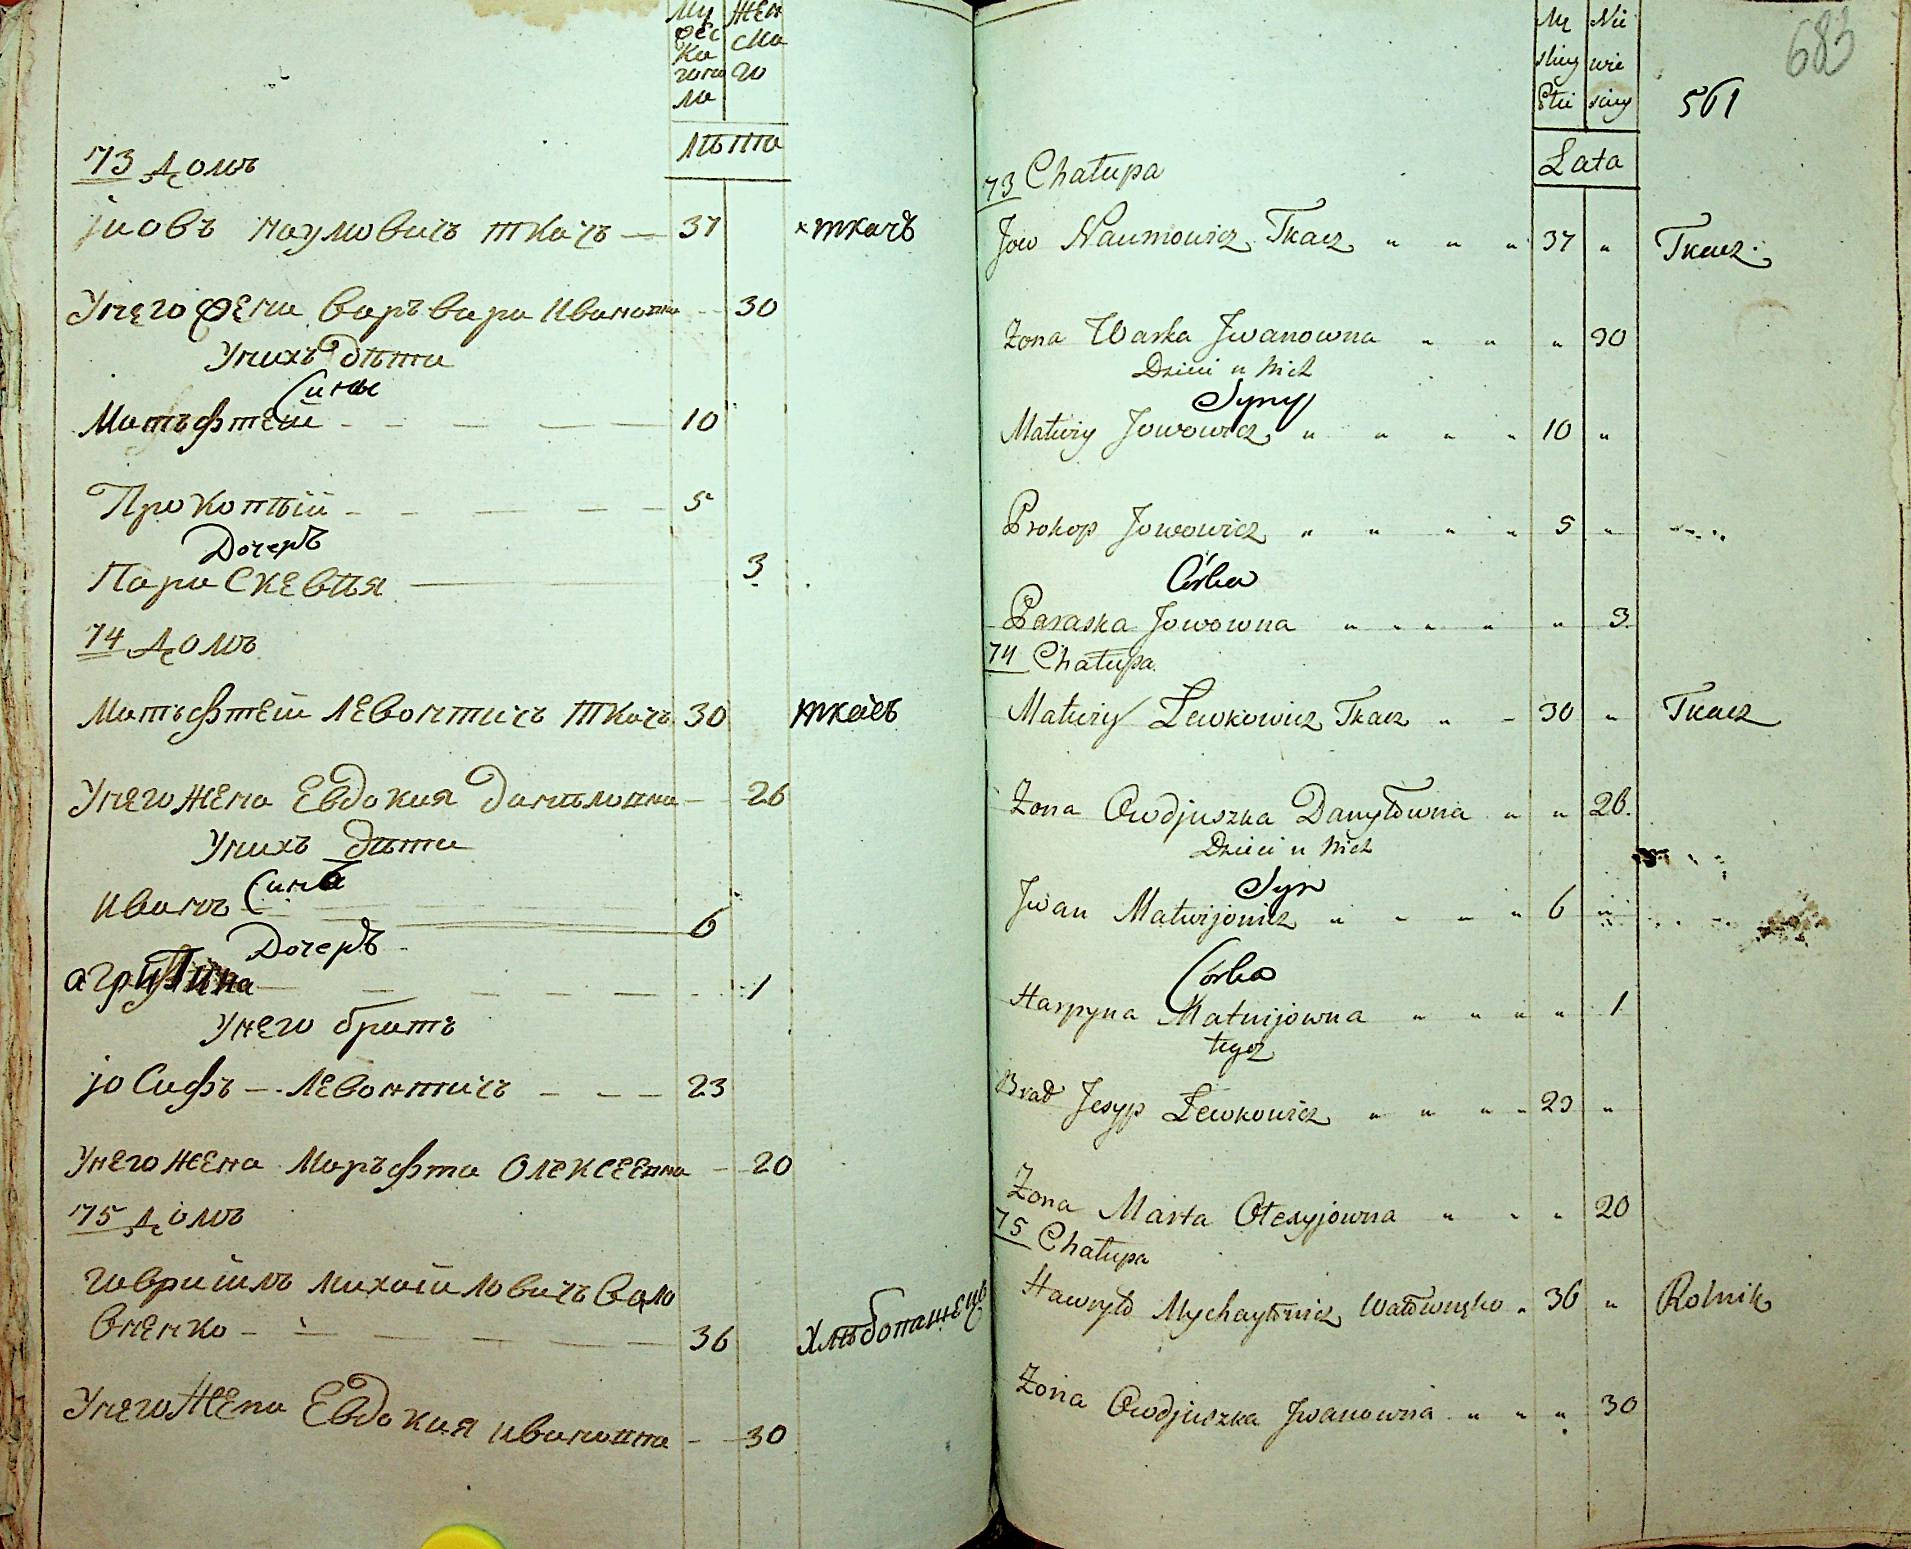 Му Жен
жес ска
ка го
лѣта
73 домъ
іиовъ наумовичъ ткачъ — 37 ткачъ
Унего жена варъвара Ивановна 30
Унихъ дѣти
Сины
Матъфтей 10
Прокопѣй 5
Дочеръ
Параскевѣя 3
74 домъ
Матъфтей левонтичъ ткачъ 30 ткачъ
Унего жена Евдокия данѣловна 26
Унихъ дѣти
Синъ
иванъ 6
Дочеръ
агрипина 1
Унего братъ
іосифъ — левонтичъ 23
Унего жена Маръфта Олексеевна 20
75 домъ
гавриилъ михайловичъ вало
вненко 36 Хлѣбопашецъ
Унего жена Евдокия ивановна 30
683
561
Lata
73 Chałupa
Jow Naumowicz Tkacz " " " 37 " Tkacz.
Żona Warka Jwanowna " " " 30
Dzieci u Nich
Syny
Matwiy Jowowicz " " " " 10 "
Prokop Jowowicz " " " " 5 "
Córka
Paraska Jowowna " " " " " 3.
74 Chałupa
Matwiy Lewkowicz Tkacz " " 30 " Tkacz
Żona Owdjuszka Danyłowna " " 26.
Dzieci u Nich
Syn
Jwan Matwijowicz " " " " 6 "
Córka
Harpyna Matwijowna " " " " 1
tegoż
Brad Jesyp Lewkowicz " " " " 23 "
Żona Marta Ołexyjowna " " " 20
75 Chałupa
Hawryło Mychayłowicz Wałownęko " 36 " Rolnik
Żona Owdjuszka Jwanowna " " " 30